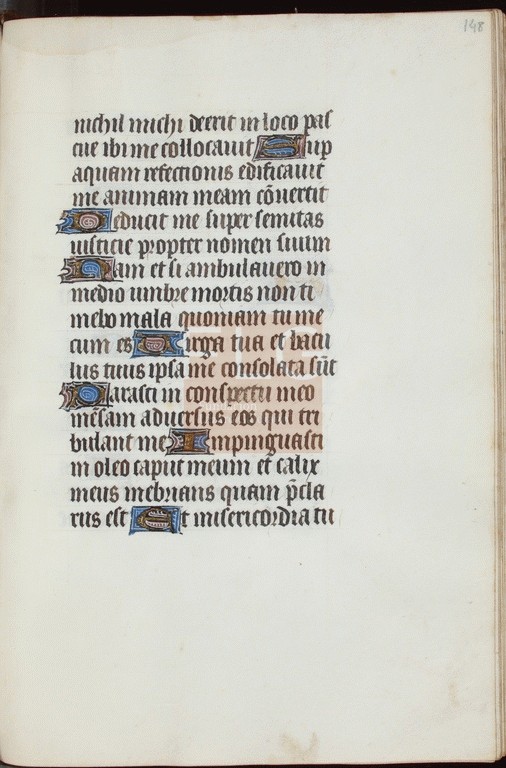 148
nichil michi deerit in loco pas
cue ibi me collocauit Sup
aquam refectionis edificauit
me animam meam cōuertit
Deducit me super semitas
iusticie propter nomen suum
Nam et si ambulauero in
medio umbre mortis non ti
mebo mala quoniam tu me
cum es Uirga tua et bacu
lus tuus ipsa me consolata sūt
Parasti in conspectu meo
mēsam aduersus eos qui tri
bulant me Impinguasti
in oleo caput meum et calix
meus inebrians quam p̄cla
rus est Et misericordia tu